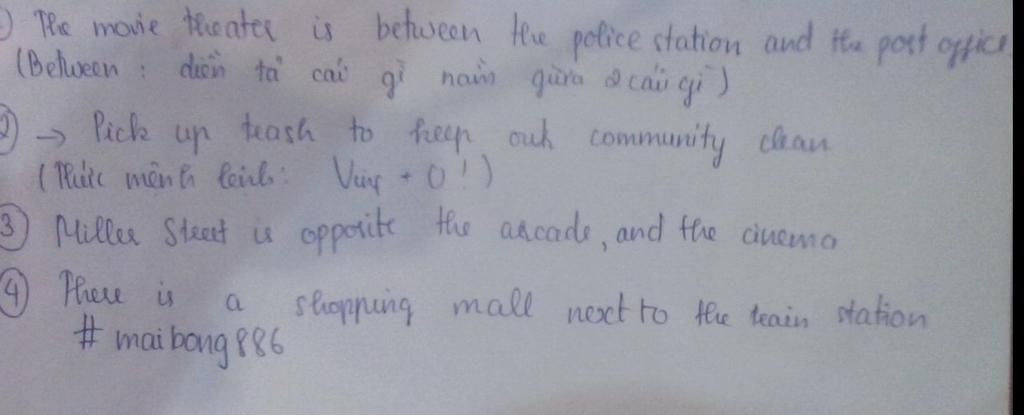 ) The movie theater is between the police station and the post office
(Between : diễn tả cái gì nằm giữa 2 cái gì)
2) → Pick up trash to keep our community clean
(Thức mệnh lệnh: Vinf + O!)
3 Miller Street is opposite the arcade, and the cinema
4 There is a shopping mall next to the train station
# maibong886